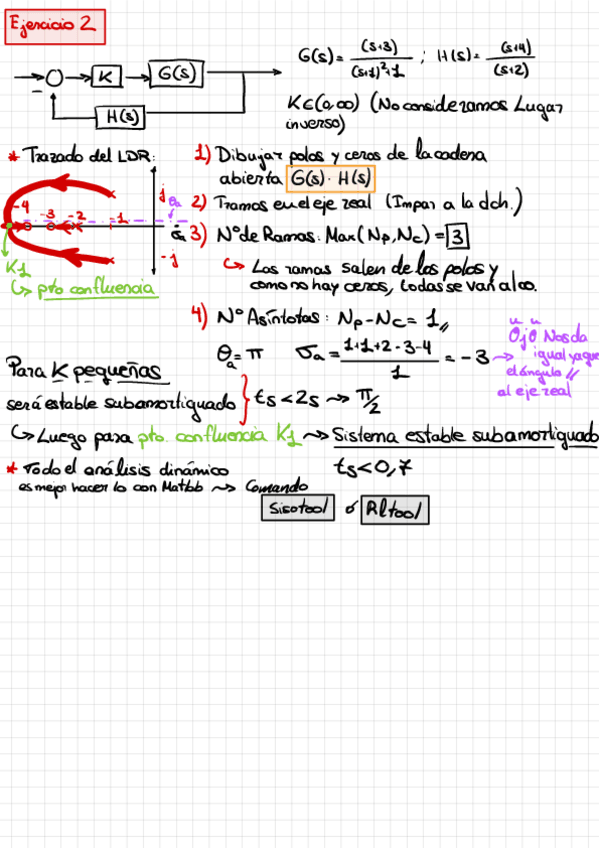 Ejercicio 2
G(s)= (s+3) / (s+1)²+1 ; H(s)= (s+4) / (s+2)
K
G(s)
H(s)
K∈(0,∞) (No consideramos Lugar
inverso)
* Trazado del LDR:
1) Dibujar polos y ceros de la cadena
abierta G(s)·H(s)
2) Tramos en el eje real (Impar a la dch.)
3) Nº de Ramas: Max(Np,Nc) = 3
↳ Las ramas salen de los polos y
como no hay ceros, todas se van al ∞.
-4 -3 -2 -1
j
θa
-j
K1
↳ pto confluencia
4) Nº Asíntotas: Np-Nc= 1,,
θa = π σa = 1+1+2-3-4 / 1 = -3
Ojo Nos da
igual ya que
el ángulo //
al eje real
Para K pequeñas
será estable subamortiguado } ts<2s ⇝ π/2
↳ Luego para pto. confluencia K1 ⇝ Sistema estable subamortiguado
ts<0,7
* Todo el análisis dinámico
es mejor hacerlo con Matlab ⇝ Comando
Sisotool ó Rltool